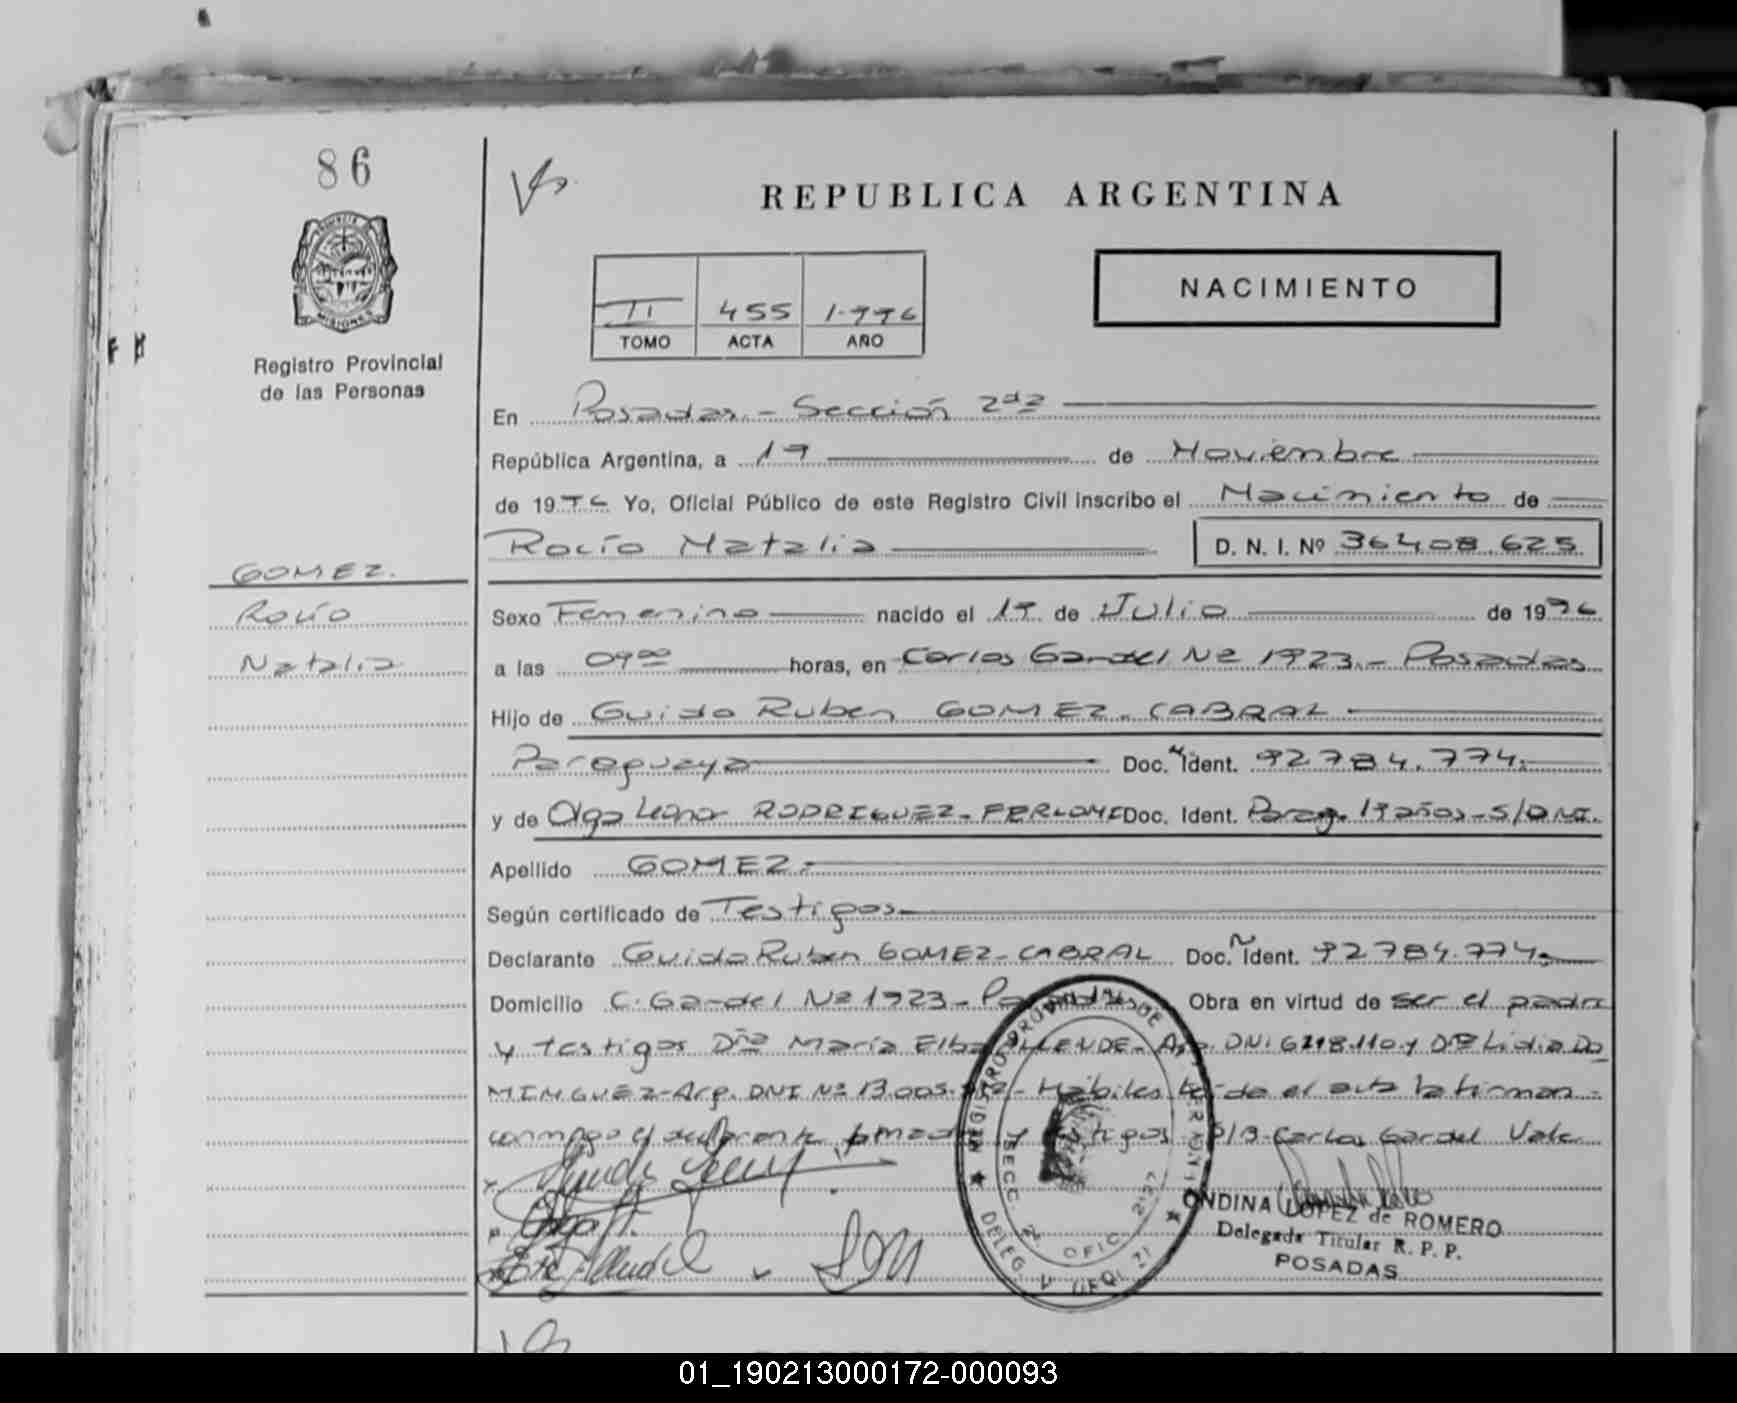 86
REPUBLICA ARGENTINA
NACIMIENTO
II 455 1.996
TOMO ACTA AÑO
MISIONES
Registro Provincial
de las Personas
En Posadas - Sección 2da
República Argentina, a 19 de Noviembre
de 1996 Yo, Oficial Público de este Registro Civil inscribo el Nacimiento de
Rocío Natalia D. N. I. Nº 36408.625
GOMEZ.
Rocío
Natalia
Sexo Femenino nacido el de Julio de 1996
a las 09 00 horas, en Carlos Gardel Nº 1923.- Posadas
Hijo de Guido Ruben GOMEZ - CABRAL
Paraguaya Doc. Ident. 92.784.774.
y de Olga Leonor RODRIGUEZ - Doc. Ident. Parag. 19 años - S/DNI.
Apellido GOMEZ
Según certificado de Testigos
Declarante Guido Ruben GOMEZ - CABRAL Doc. Ident. 92.784.774
Domicilio C. Gardel Nº 1923 - Posadas Obra en virtud de ser el padre
y testigos Dña María Elba ALLENDE - Arg. DNI Dña Lidia DO
MINGUEZ - Arg. DNI Nº 13.005. - Hábiles leída el acta la firman
conmigo el declarante, la madre y testigos Carlos Gardel Vale
REGISTRO PROVINCIAL DE LAS PERSONAS
SECC. 2ª OFIC. 2127
DELEG.
ONDINA LOPEZ de ROMERO
Delegada Titular R. P. P.
POSADAS
01_190213000172-000093